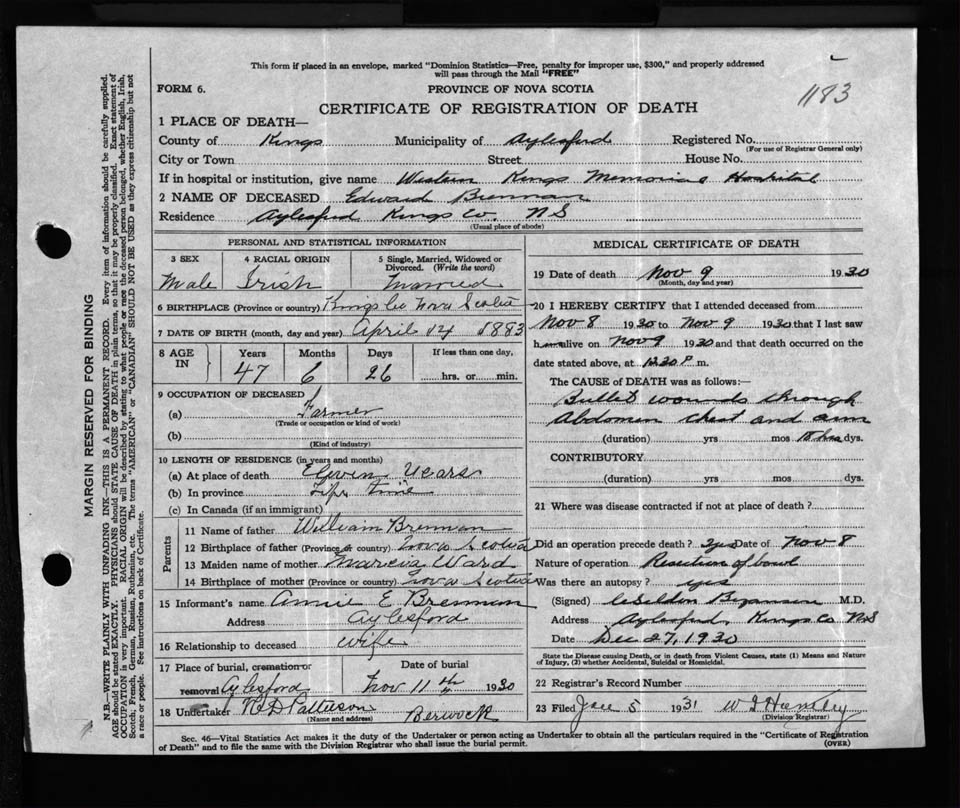 This form if placed in an envelope, marked "Dominion Statistics—Free, penalty for improper use, $300," and properly addressed
will pass through the Mail "FREE"
1183
FORM 6.
PROVINCE OF NOVA SCOTIA
CERTIFICATE OF REGISTRATION OF DEATH
MARGIN RESERVED FOR BINDING
N.B.—WRITE PLAINLY WITH UNFADING INK—THIS IS A PERMANENT RECORD. Every item of information should be carefully supplied.
AGE should be stated EXACTLY. PHYSICIANS should STATE CAUSE OF DEATH in plain terms, so that it may be properly classified. Exact statement of
OCCUPATION is very important. RACIAL ORIGIN will be described by stating to what people or race the deceased person belonged, whether English, Irish,
Scotch, French, German, Russian, Ruthenian, etc. The terms "AMERICAN" or "CANADIAN" SHOULD NOT BE USED as they express citizenship but not
a race or people. See instructions on back of Certificate.
1 PLACE OF DEATH—
County of Kings Municipality of Aylesford Registered No.
(For use of Registrar General only)
City or Town Street House No.
If in hospital or institution, give name Western Kings Memorial Hospital
2 NAME OF DECEASED Edward Brennan
Residence Aylesford Kings Co. NS
(Usual place of abode)
PERSONAL AND STATISTICAL INFORMATION
3 SEX 4 RACIAL ORIGIN 5 Single, Married, Widowed or
Divorced. (Write the word)
Male Irish Married
6 BIRTHPLACE (Province or country) Kings Co Nova Scotia
7 DATE OF BIRTH (month, day and year) April 14 1883
8 AGE IN Years Months Days If less than one day,
47 6 26 hrs. or min.
9 OCCUPATION OF DECEASED
(a) Farmer
(Trade or occupation or kind of work)
(b)
(Kind of industry)
10 LENGTH OF RESIDENCE (in years and months)
(a) At place of death Eleven Years
(b) In province Life Time
(c) In Canada (if an immigrant)
Parents
11 Name of father William Brennan
12 Birthplace of father (Province or country) Nova Scotia
13 Maiden name of mother Ward
14 Birthplace of mother (Province or country) Nova Scotia
15 Informant's name Annie E Brennan
Address Aylesford
16 Relationship to deceased Wife
17 Place of burial, cremation or Date of burial
removal Aylesford Nov 11th 1930
18 Undertaker Patterson Berwick
(Name and address)
MEDICAL CERTIFICATE OF DEATH
19 Date of death Nov 9 1930
(Month, day and year)
20 I HEREBY CERTIFY that I attended deceased from
Nov 8 1930 to Nov 9 1930 that I last saw
him alive on Nov 9 1930 and that death occurred on the
date stated above, at 12.30 P m.
The CAUSE OF DEATH was as follows:—
Bullet wounds through
Abdomen chest and arm
(duration) yrs mos 18 hrs dys.
CONTRIBUTORY
(duration) yrs mos dys.
21 Where was disease contracted if not at place of death?
Did an operation precede death? Yes Date of Nov 8
Nature of operation Resection of bowel
Was there an autopsy? yes
(Signed) M.D.
Address Aylesford, Kings Co NS
Date Dec 27, 1930
State the Disease causing Death, or in death from Violent Causes, state (1) Means and Nature
of Injury, (2) whether Accidental, Suicidal or Homicidal.
22 Registrar's Record Number
23 Filed Jan 5 1931
(Division Registrar)
Sec. 46—Vital Statistics Act makes it the duty of the Undertaker or person acting as Undertaker to obtain all the particulars required in the "Certificate of Registration
of Death" and to file the same with the Division Registrar who shall issue the burial permit. (OVER)